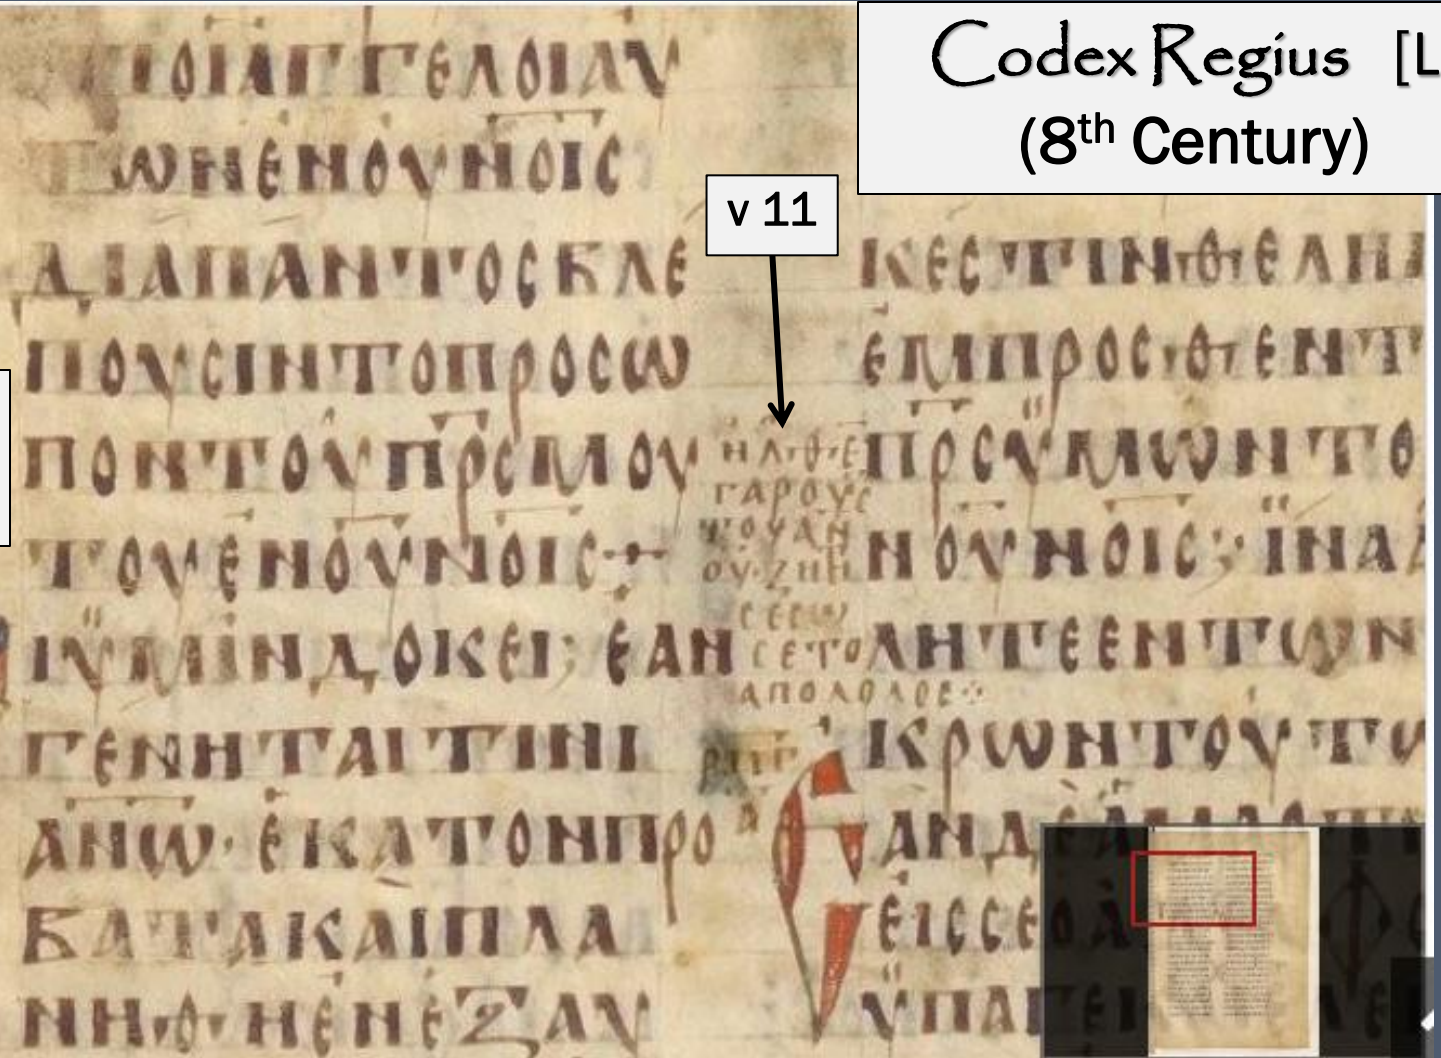 Codex Regius [L
(8th Century)
v 11
ΟΙΑΓΓΕΛΟΙΑΥ
ΩΝΕΝΟΥΝΟΙC
ΔΙΑΠΑΝΤΟCΒΛΕ
ΠΟΥCΙΝΤΟΠΡΟCΩ
ΠΟΝΤΟΥΠΡCΜΟΥ
ΤΟΥΕΝΟΥΝΟΙC
ΙΫΜΙΝΔΟΚΕΙ; ΕΑΝ
ΓΕΝΗΤΑΙΤΙΝΙ
ΑΝΩ·ΕΚΑΤΟΝΠΡΟ
ΒΑΤΑΚΑΙΠΛΑ
ΝΗΘΗΕΝΕΞΑΥ
ΗΛΘΕ
ΓΑΡΟΥC
ΤΟΥΑΝ
ΟΥ·ΖΗΗ
CΕCΩ
CΕΤΟ
ΑΠΟΛΟΛΟC
ΚΕCΤΙΝΘΕΛΗ
ΕΜΠΡΟCΘΕΝΤ
ΠΡCΫΜΩΝΤΟ
ΝΟΥΝΟΙC; ΪΝΑ
ΛΗΤΕΕΝΤΩΝ
ΙΚΡΩΝΤΟΥΤ
ΕΑΝΔΕΑ
ΕΙCCΕ
ΫΠΑΓΕΙ